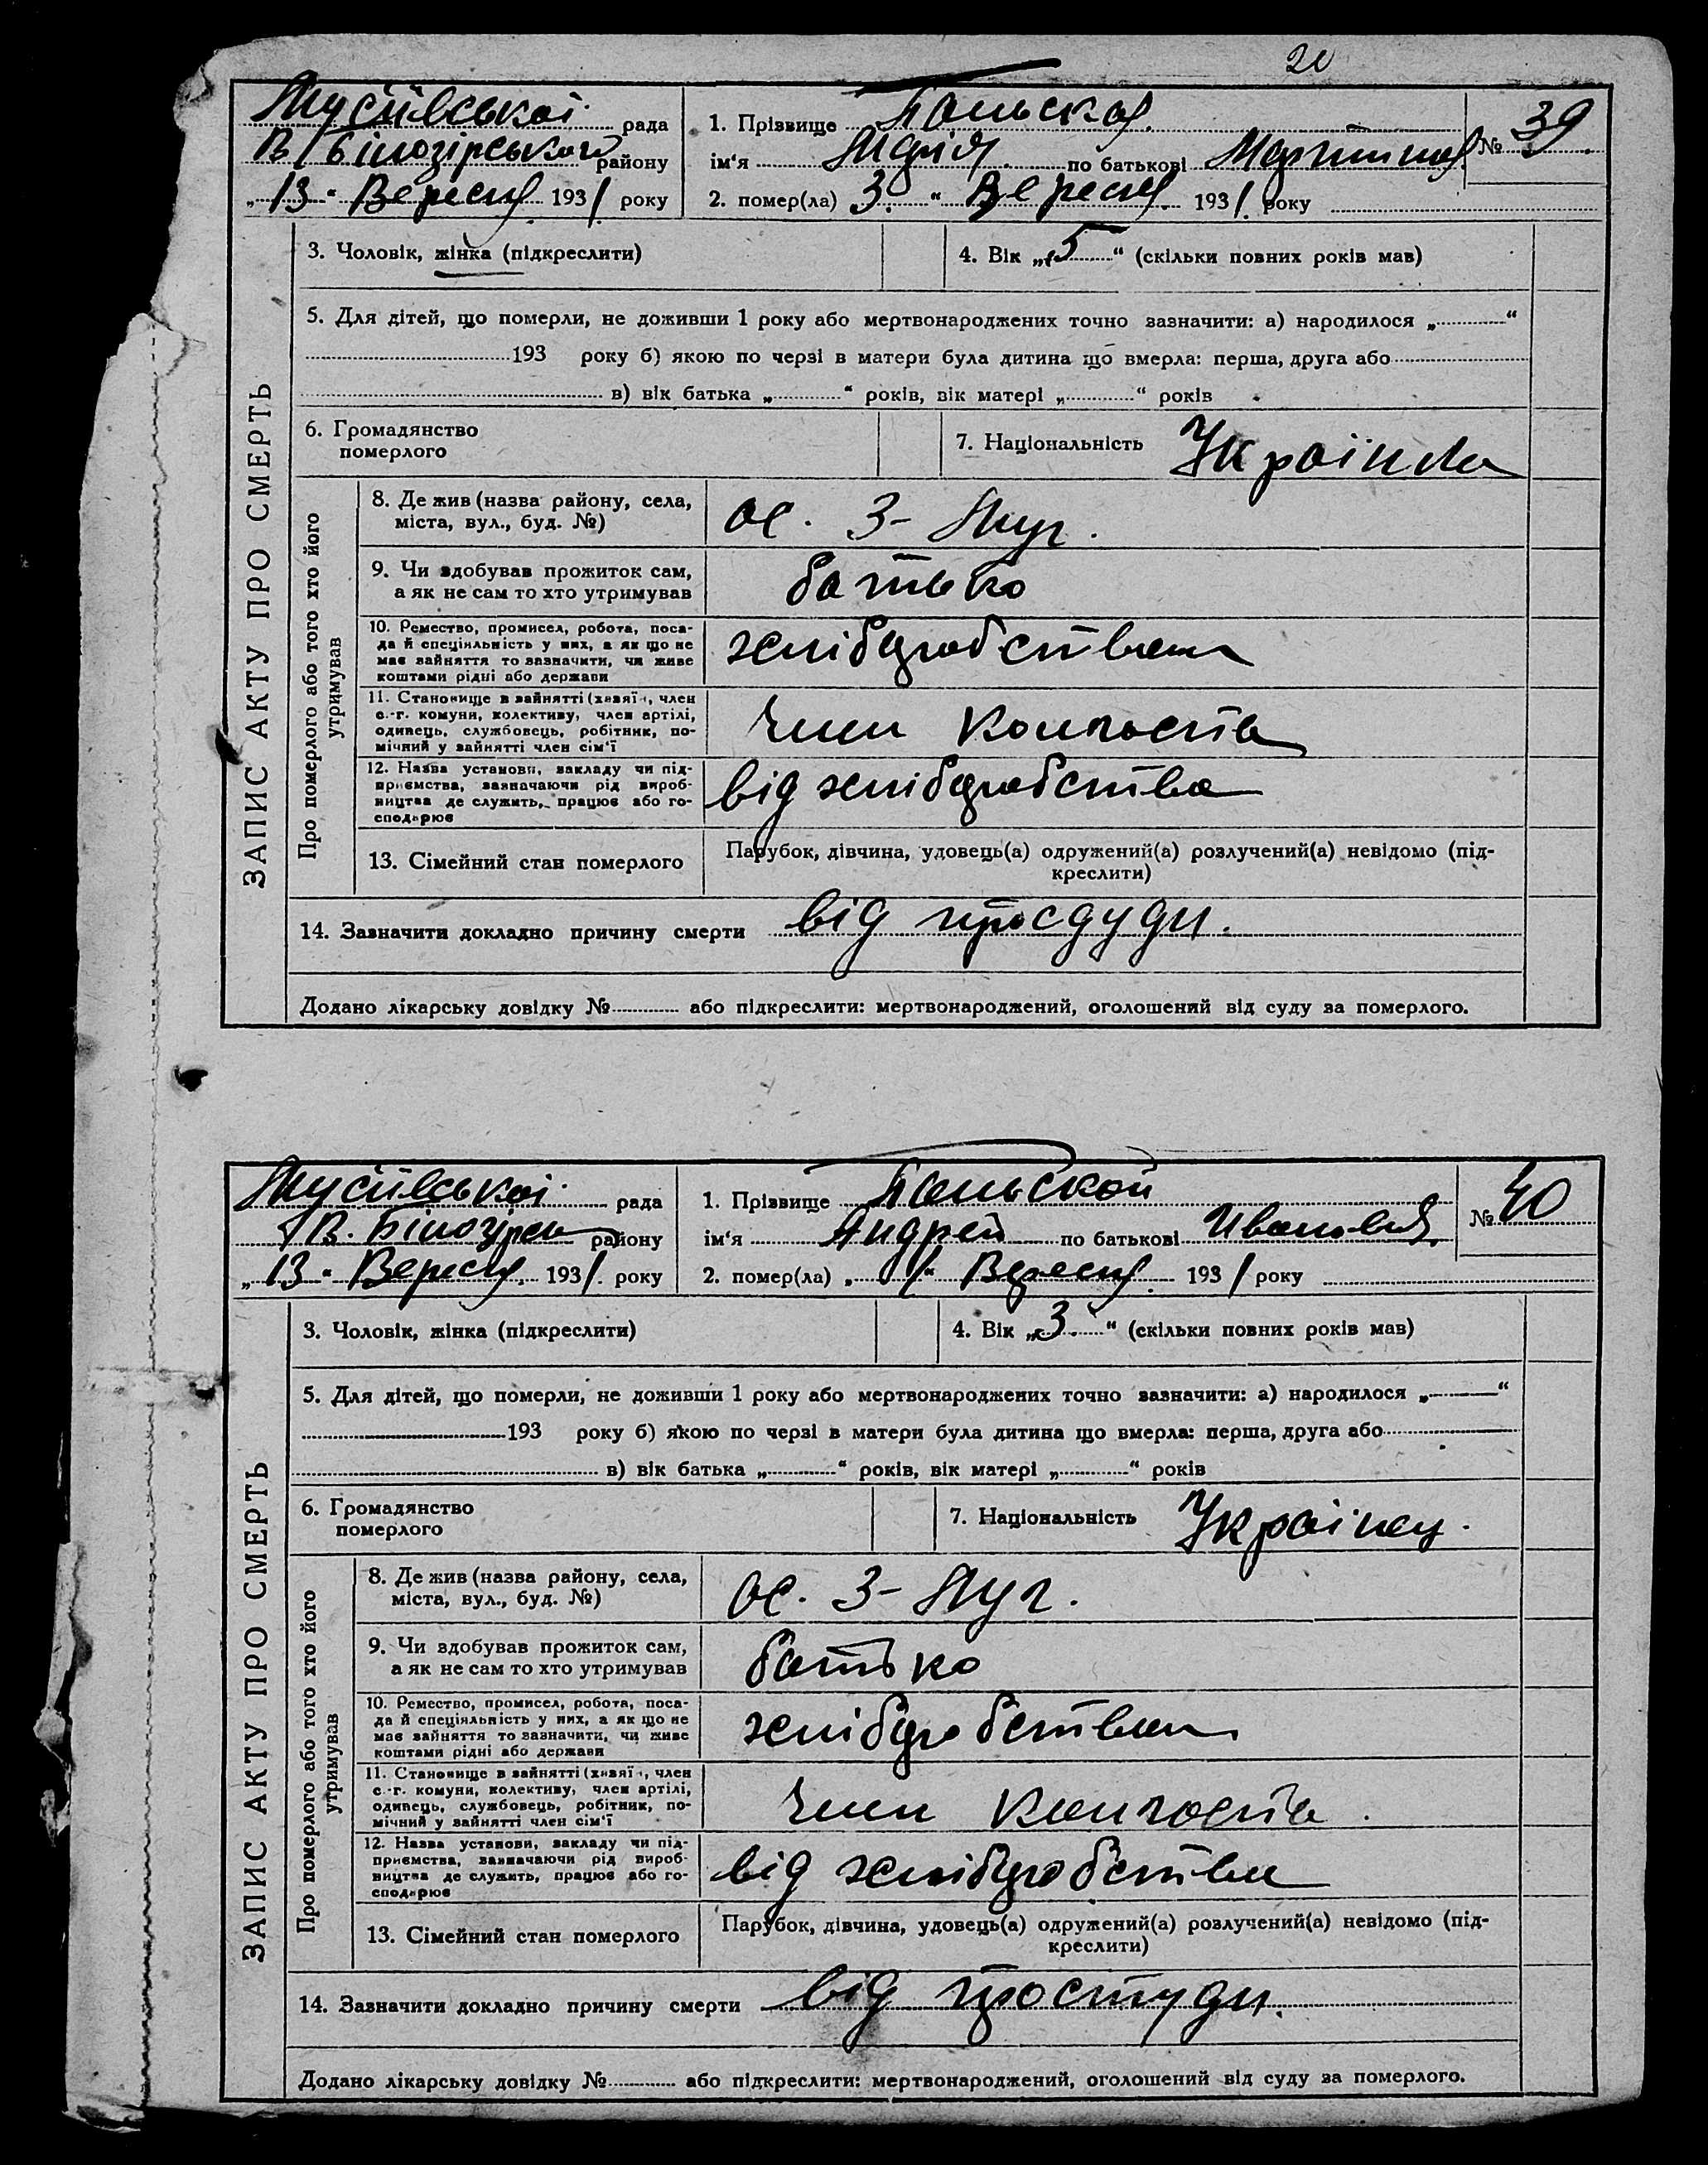 20
Мусіївської рада
В/Білозірського району
„13“ Вересня 1931 року
1. Прізвище Пальская
ім‘я Марія по батькові Мартинов.
№ 39
2. помер(ла) 3 “ Вересня 1931 року
ЗАПИС АКТУ ПРО СМЕРТЬ
3. Чоловік, жінка (підкреслити)
4. Вік „5“ (скільки повних років мав)
5. Для дітей, що померли, не доживши 1 року або мертвонароджених точно зазначити: а) народилося „ “
193 року б) якою по черзі в матери була дитина що вмерла: перша, друга або
в) вік батька „ “ років, вік матері „ “ років
6. Громадянство
померлого
7. Національність Українка
Про померлого або того хто його
утримував
8. Де жив (назва району, села,
міста, вул., буд. №)
ос. З-Луг.
9. Чи здобував прожиток сам,
а як не сам то хто утримував
батько
10. Ремество, промисел, робота, поса-
да й спеціяльність у них, а як що не
має зайняття то зазначити, чи живе
коштами рідні або держави
хлібуробством
11. Становище в зайнятті (хазяїн, член
с.-г. комуни, колективу, член артілі,
одинець, службовець, робітник, по-
мічний у зайнятті член сім‘ї
член колгоспа
12. Назва установи, закладу чи під-
приємства, зазначаючи рід вироб-
ництва де служить, працює або го-
сподарює
від хлібуробства
13. Сімейний стан померлого
Парубок, дівчина, удовець(а) одружений(а) розлучений(а) невідомо (під-
креслити)
14. Зазначити докладно причину смерти від просдуди.
Додано лікарську довідку № або підкреслити: мертвонароджений, оголошений від суду за померлого.
Мусіївської рада
В. Білозірск району
„13“ Вересня 1931 року
1. Прізвище Пальской
ім‘я Андрей по батькові Иванов.
№ 40
2. помер(ла) „1“ Вересня 1931 року
ЗАПИС АКТУ ПРО СМЕРТЬ
3. Чоловік, жінка (підкреслити)
4. Вік „3“ (скільки повних років мав)
5. Для дітей, що померли, не доживши 1 року або мертвонароджених точно зазначити: а) народилося „ “
193 року б) якою по черзі в матери була дитина що вмерла: перша, друга або
в) вік батька „ “ років, вік матері „ “ років
6. Громадянство
померлого
7. Національність Українец.
Про померлого або того хто його
утримував
8. Де жив (назва району, села,
міста, вул., буд. №)
ос. З-Луг.
9. Чи здобував прожиток сам,
а як не сам то хто утримував
батько
10. Ремество, промисел, робота, поса-
да й спеціяльність у них, а як що не
має зайняття то зазначити, чи живе
коштами рідні або держави
хлібуробством
11. Становище в зайнятті (хазяїн, член
с.-г. комуни, колективу, член артілі,
одинець, службовець, робітник, по-
мічний у зайнятті член сім‘ї
член колгоспа.
12. Назва установи, закладу чи під-
приємства, зазначаючи рід вироб-
ництва де служить, працює або го-
сподарює
від хлібуробства
13. Сімейний стан померлого
Парубок, дівчина, удовець(а) одружений(а) розлучений(а) невідомо (під-
креслити)
14. Зазначити докладно причину смерти від простуди.
Додано лікарську довідку № або підкреслити: мертвонароджений, оголошений від суду за померлого.